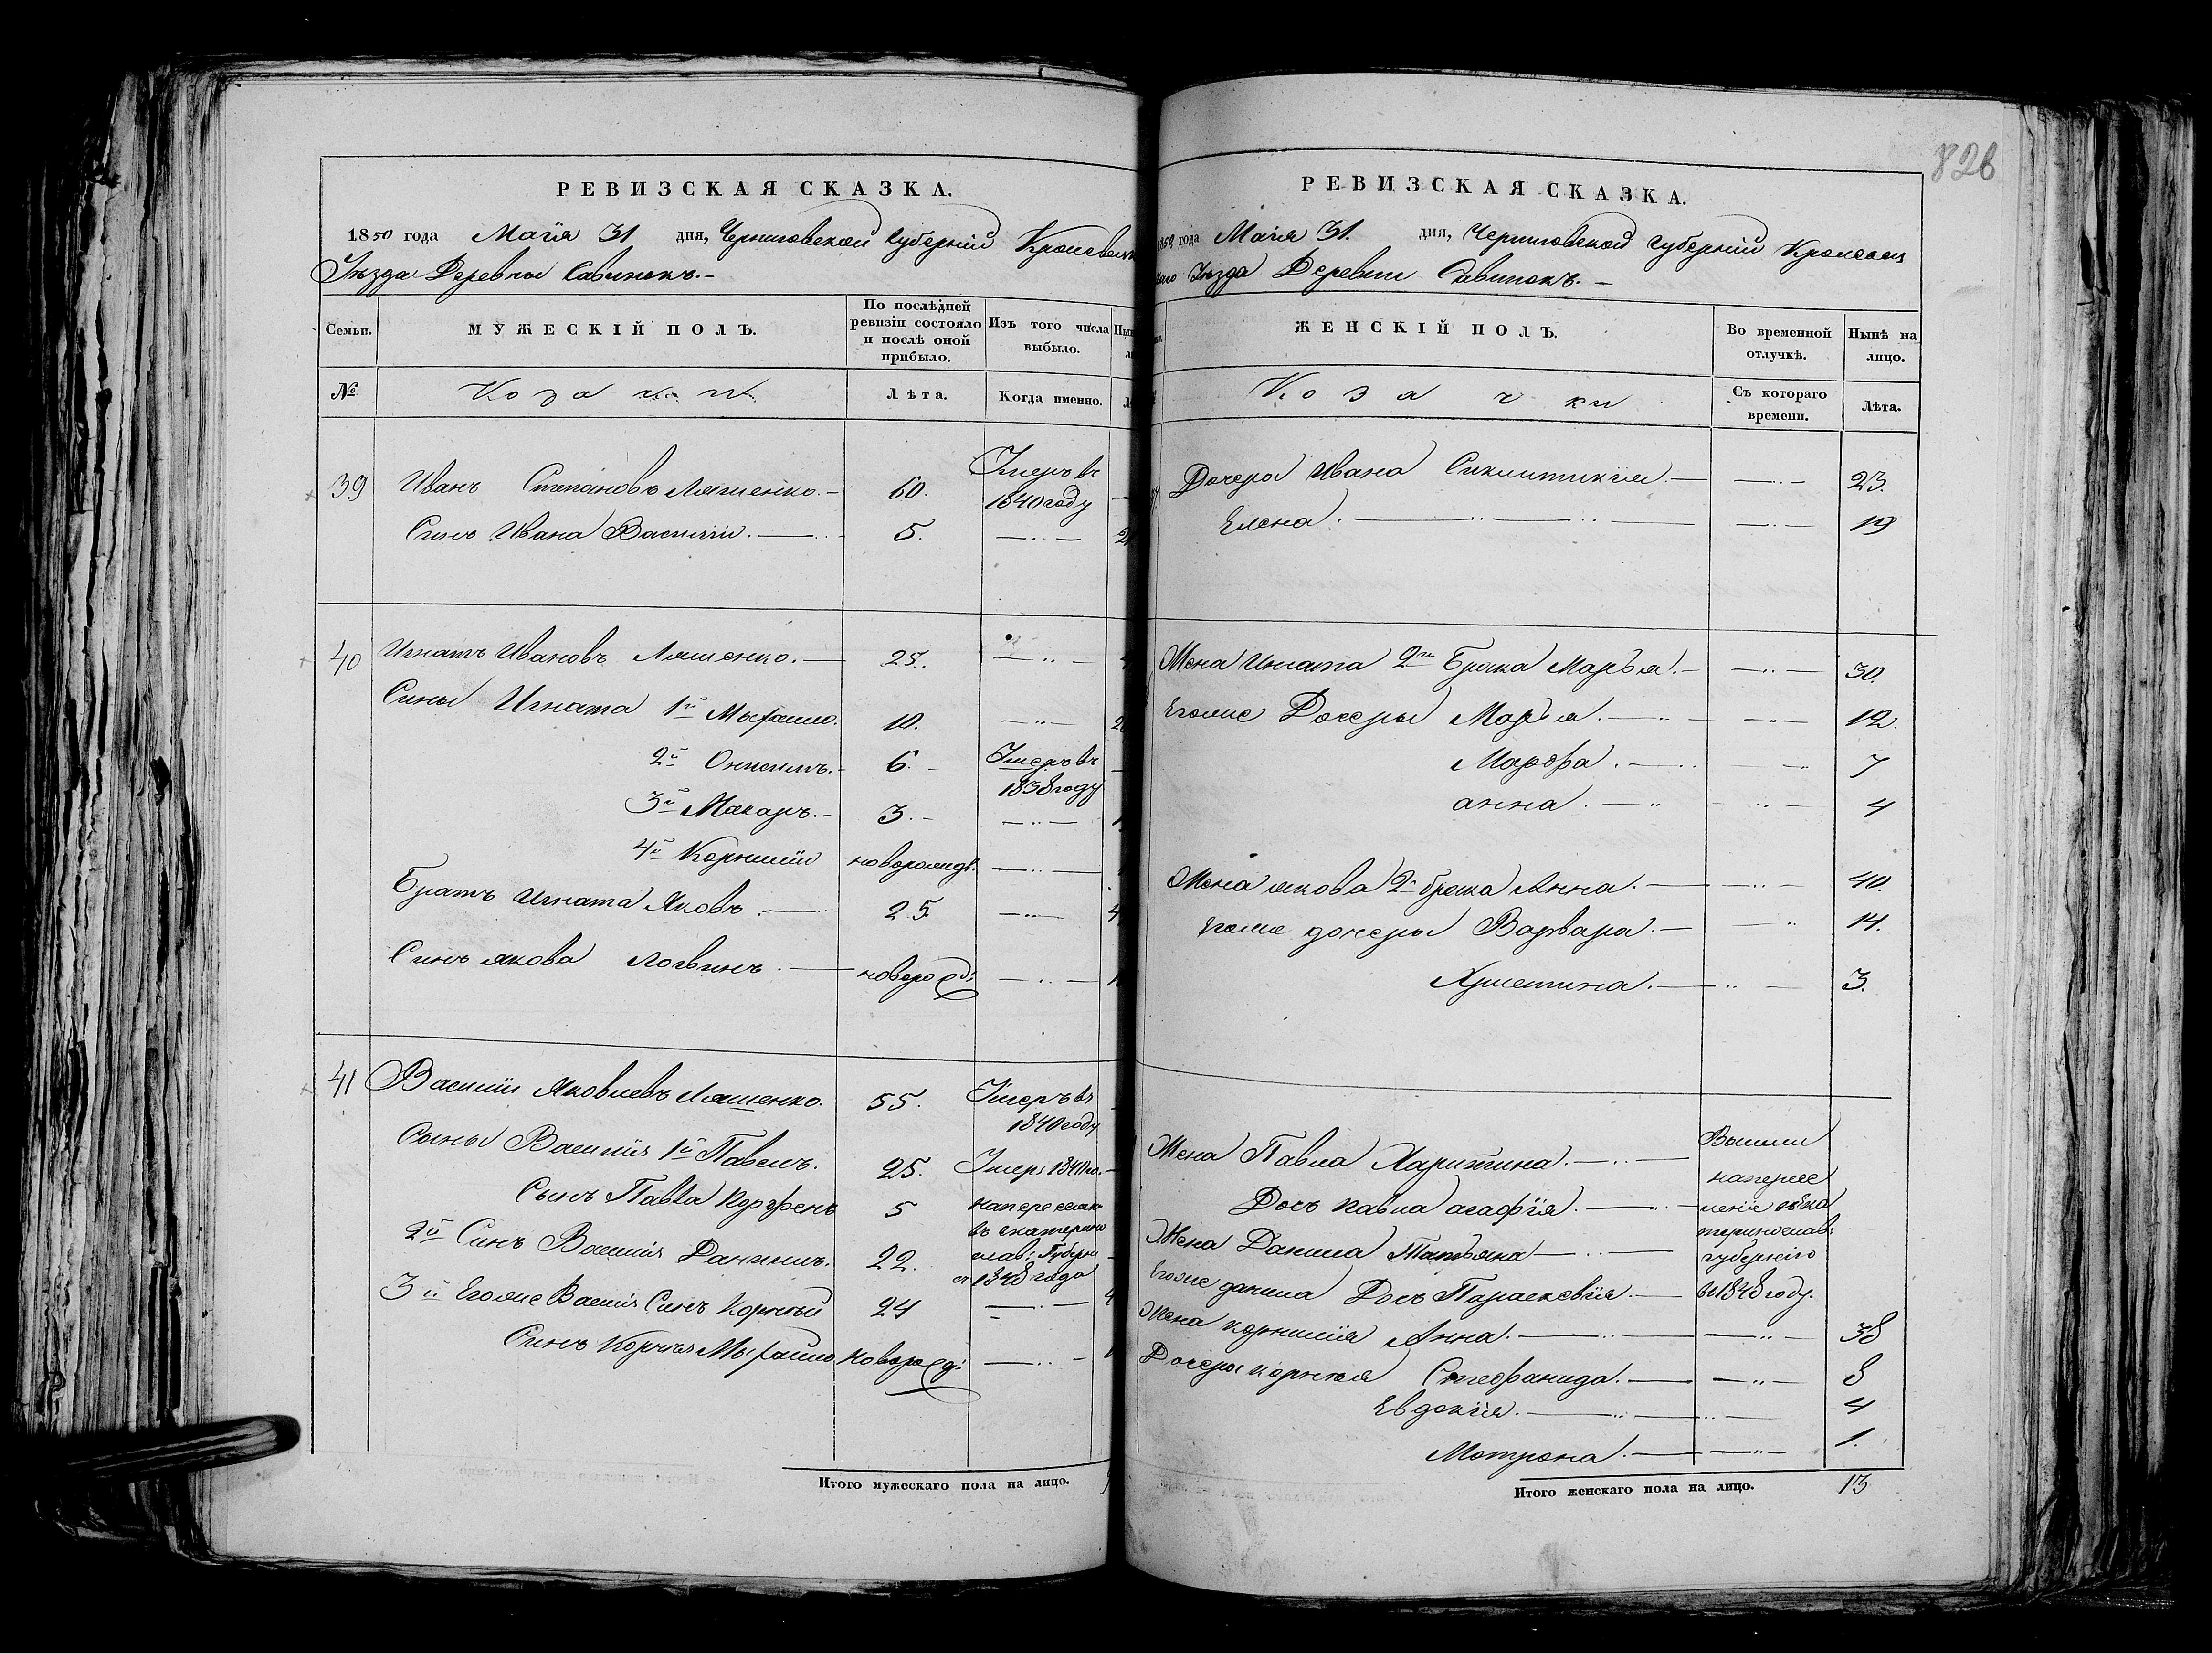 826
РЕВИЗСКАЯ СКАЗКА.
1850 года Маїя 31 дня, Черниговской Губерніи Кролевец
Уѣзда Деревни Савинокъ.
Семьи.
МУЖЕСКІЙ ПОЛЪ.
По послѣдней ревизіи состояло и послѣ оной прибыло.
Изъ того числа выбыло.
№
Козаки
Лѣта.
Когда именно.
39 Иванъ Степановъ Ляшенко. 60. Умеръ въ 1840 году
Синъ Ивана Василій. 5.
40 Игнатъ Ивановъ Ляшенко. 25.
Сины Игната 1й Мыхайло. 10.
2й Онисимъ. 6. Умеръ въ 1838 году
3й Макаръ. 3.
4й Корнилій новорожд.
Братъ Игната Яковъ 25
Синъ Якова Логвинъ новорожд:
41 Василій Яковлевъ Ляшенко. 55. Умеръ въ 1840 году
Сыны Василія 1й Павелъ. 25. Умеръ 1840 го.
Сынъ Павла 5
2й Синъ Василія Данило. 22.
въ екатерино
слав: Губерн
1848 года
3й Егоже Василія Синъ Корній 24
Синъ Корнія Мыхайло новорожд:
Итого мужескаго пола на лицо.
РЕВИЗСКАЯ СКАЗКА.
1850 года Маїя 31. дня, Черниговской Губерніи Кролевец
каго Уѣзда Деревни Савинокъ.
ЖЕНСКІЙ ПОЛЪ.
Во временной отлучкѣ.
Нынѣ на лицо.
Козачки
Съ котораго времени.
Лѣта.
Дочери Ивана 23.
Елена. 19
Жена Игната 2го Брака Марья. 30.
Егоже Дочеры Марья. 12.
Марфа. 7
анна. 4
Жена якова 2 брака Анна. 40.
Егоже дочеры Варвара. 14.
Христина. 3.
Жена Павла Харитина.
Дочь павла агафія.
Жена Данила Татьяна
Егоже данила Дочь Параскевія. въ 1848 году.
Жена корнилія Анна. 38
Дочеры корнія Стефанида. 8
Евдокія. 4
Мотрона. 1.
Итого женскаго пола на лицо. 13